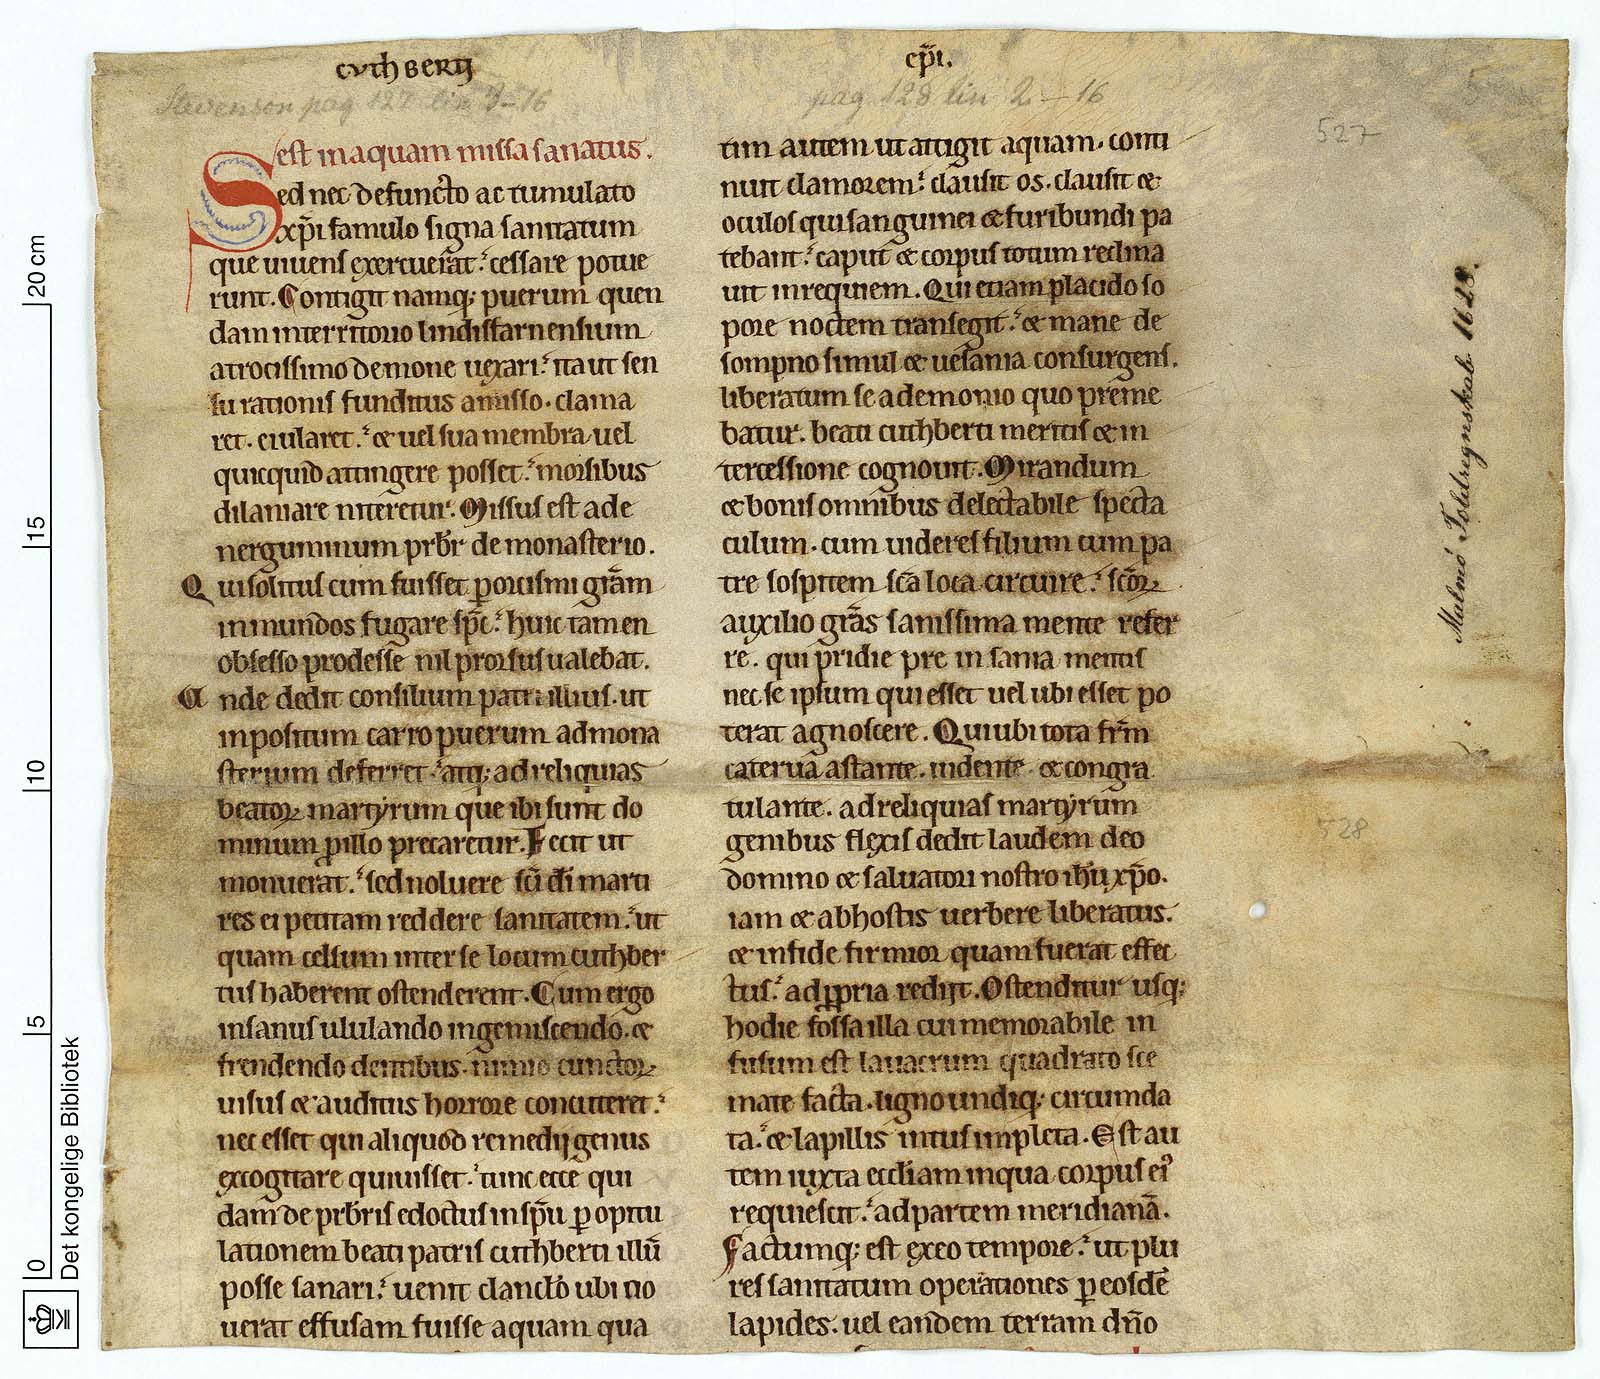 cuthberii
ep̄i.
Stevenson pag 127 lin 3-16
pag 128 lin 2-16
527
est in aquam missa sanatus.
Sed nec defuncto ac tumulato
xp̄i famulo signa sanitatum
que uiuens exercuerat: cessare potue
runt. Contigit namq; puerum quen
dam in territorio lindisfarnensium
atrocissimo demone uexari: ita ut sen
su rationis funditus amisso. clama
ret. eiularet: & uel sua membra uel
quicquid attingere posset: morsibus
dilaniare niteretur. Missus est ad e
nerguminum prb̄r de monasterio.
Qui solitus cum fuisset ꝑ exorcismi gr̄am
inmundos fugare sp̄c: huic tamen
obsesso prodesse nil prorsus ualebat.
Unde dedit consilium patri illius. ut
inpositum carro puerum ad mona
sterium deferret: atq; ad reliquias
beatoꝝ martyrum que ibi sunt do
minum ꝓ illo precaretur. Fecit ut
monuerat: sed noluere sc̄i dī marti
res ei petitam reddere sanitatem: ut
quam celsum inter se locum cuthber
tus haberent ostenderent. Cum ergo
insanus ululando ingemiscendo. &
frendendo dentibus. nimio cunctoꝝ
uisus & auditus horrore concuteret:
nec esset qui aliquod remedij genus
excogitare quiuisset: tunc ecce qui
dam de prb̄ris edoctus in sp̄u ꝑ opitu
lationem beati patris cuthberti illū
posse sanari: uenit clancl̄o ubi no
uerat effusam fuisse aquam qua
tim autem ut attigit aquam. conti
nuit clamorem: clausit os. clausit &
oculos qui sanguinei & furibundi pa
tebant: caput & corpus totum reclina
uit in requiem. Qui etiam placido so
pore noctem transegit: & mane de
sompno simul & uesania consurgens.
liberatum se a demonio quo preme
batur. beati cuthberti meritis & in
tercessione cognouit. Mirandum
& bonis omnibus delectabile specta
culum. cum uideres filium cum pa
tre sospitem sc̄a loca circuire: sc̄oꝝ
auxilio gr̄as sanissima mente refer
re. qui pridie pre insania mentis
nec se ipsum qui esset uel ubi esset po
terat agnoscere. Qui ubi tota fr̄m
caterua astante. uidente & congra
tulante. ad reliquias martyrum
genibus flexis dedit laudem deo
domino & saluatori nostro ih̄u xp̄o.
iam & ab hostis uerbere liberatus.
& in fide firmior quam fuerat effec
tus: ad ꝓpria redijt. Ostenditur usq;
hodie fossa illa cui memorabile in
fusum est lauacrum quadrato sce
mate facta. ligno undiq; circumda
ta: & lapillis intus impleta. Est au
tem iuxta eccl̄iam in qua corpus eiꝰ
requiescit: ad partem meridianā.
Factumq; est ex eo tempore: ut plu
res sanitatum operationes ꝑ eosdē
lapides. uel eandem terram dn̄o
Malmö Toldregnskab 1628.
528
20 cm
15
10
5
0
Det kongelige Bibliotek